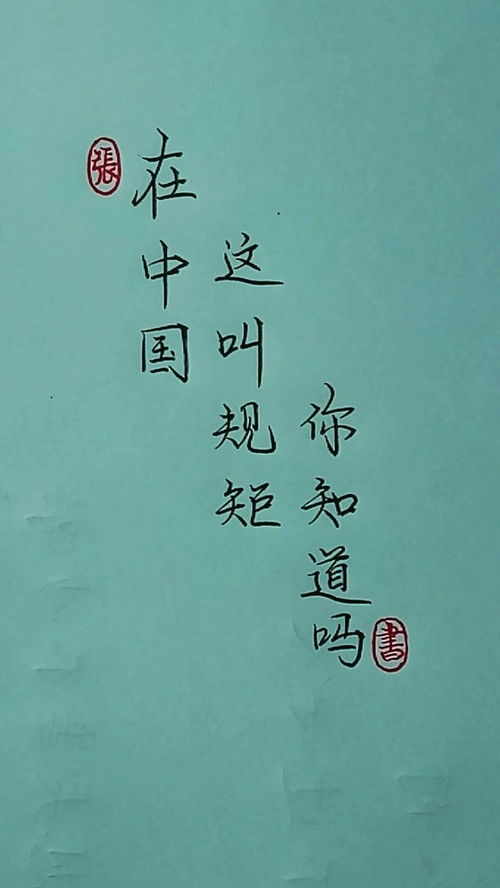 張
在中国
这叫规矩
你知道吗
書